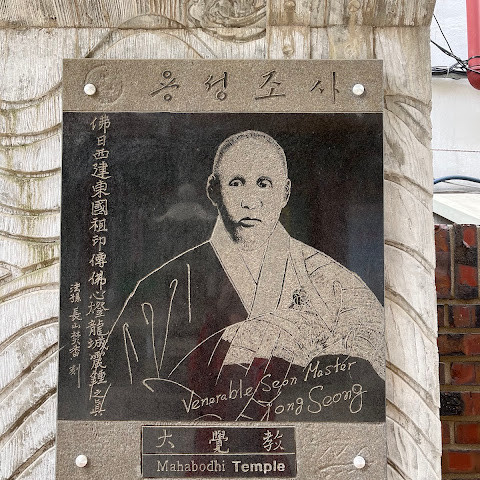 용성조사
佛日西建東國祖印傳佛心燈龍城震鍾之眞
法孫 長山 焚香 刻
Venerable Seon Master
Yong Seong
大覺敎
Mahabodhi Temple